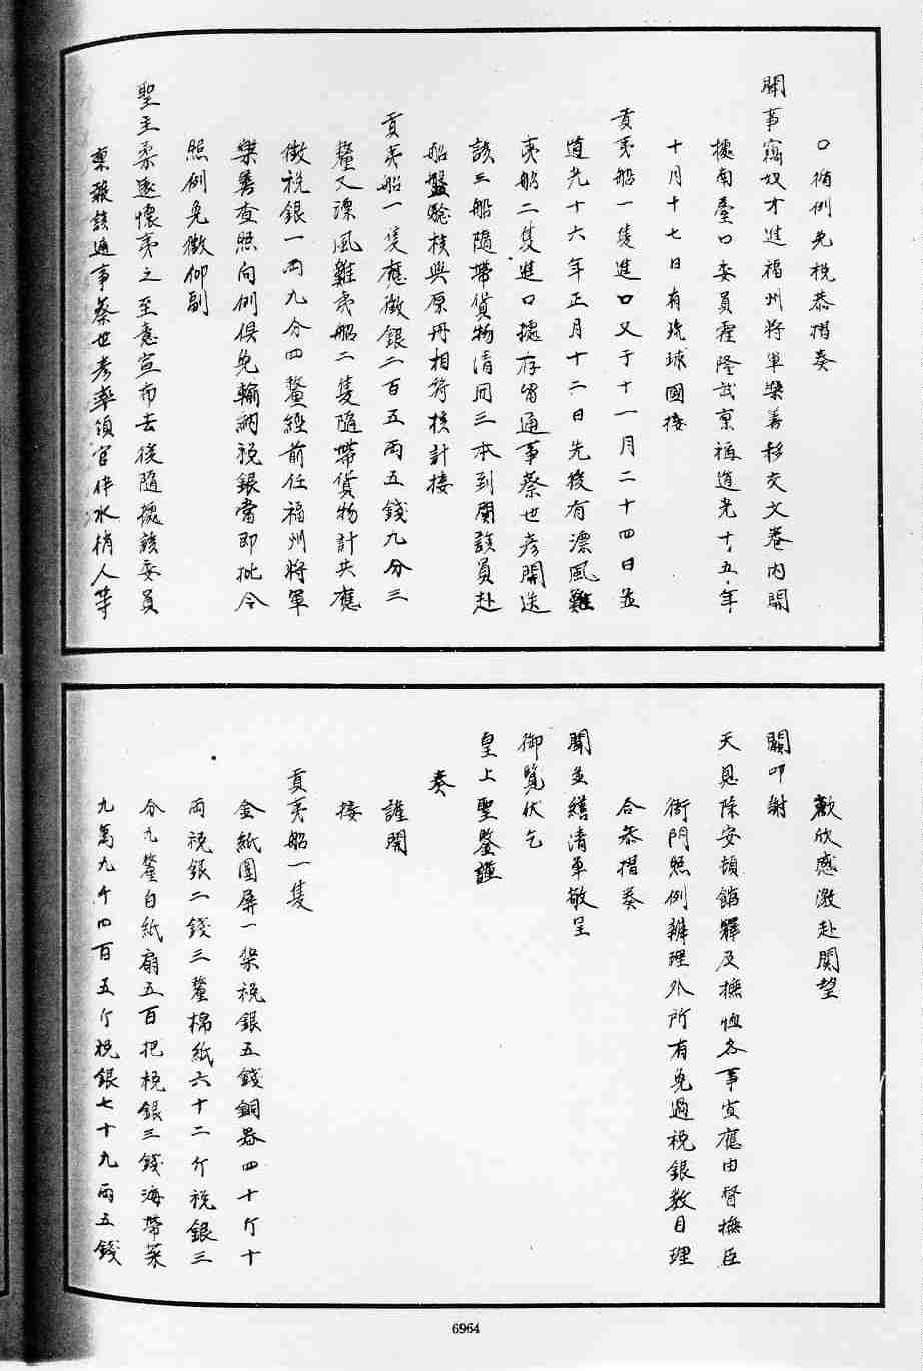 口循例免稅恭摺奏
聞事竊奴才進福州將軍樂善移交文卷內開
據南臺口委員霍隆武稟稱道光十五年
十月十七日有琉球國接
貢夷船一隻進口又于十一月二十四日並
道光十六年正月十二日先後有漂風難
夷船二隻進口據存留通事蔡世彥開送
該三船隨帶貨物清冊三本到關該員赴
船盤驗核與原冊相符核計接
貢夷船一隻應徵銀二百五兩五錢九分三
釐又漂風難夷船二隻隨帶貨物計共應
徵稅銀一兩九分四釐經前任福州將軍
樂善查照向例俱免輸納稅銀當即批令
照例免徵仰副
聖主柔遠懷夷之至意宣布去後隨據該委員
稟報該通事蔡世彥率領官伴水梢人等
歡欣感激赴關望
闕叩謝
天恩除安頓館驛及撫恤各事宜應由督撫臣
衙門照例辦理外所有免過稅銀數目理
合恭摺奏
聞並繕清單敬呈
御覽伏乞
皇上聖鑒謹
奏
謹開
接
貢夷船一隻
金紙圍屏一架稅銀五錢銅器四十斤十
兩稅銀二錢三釐棉紙六十二斤稅銀三
分九釐白紙扇五百把稅銀三錢海帶菜
九萬九千四百五斤稅銀七十九兩五錢
6964